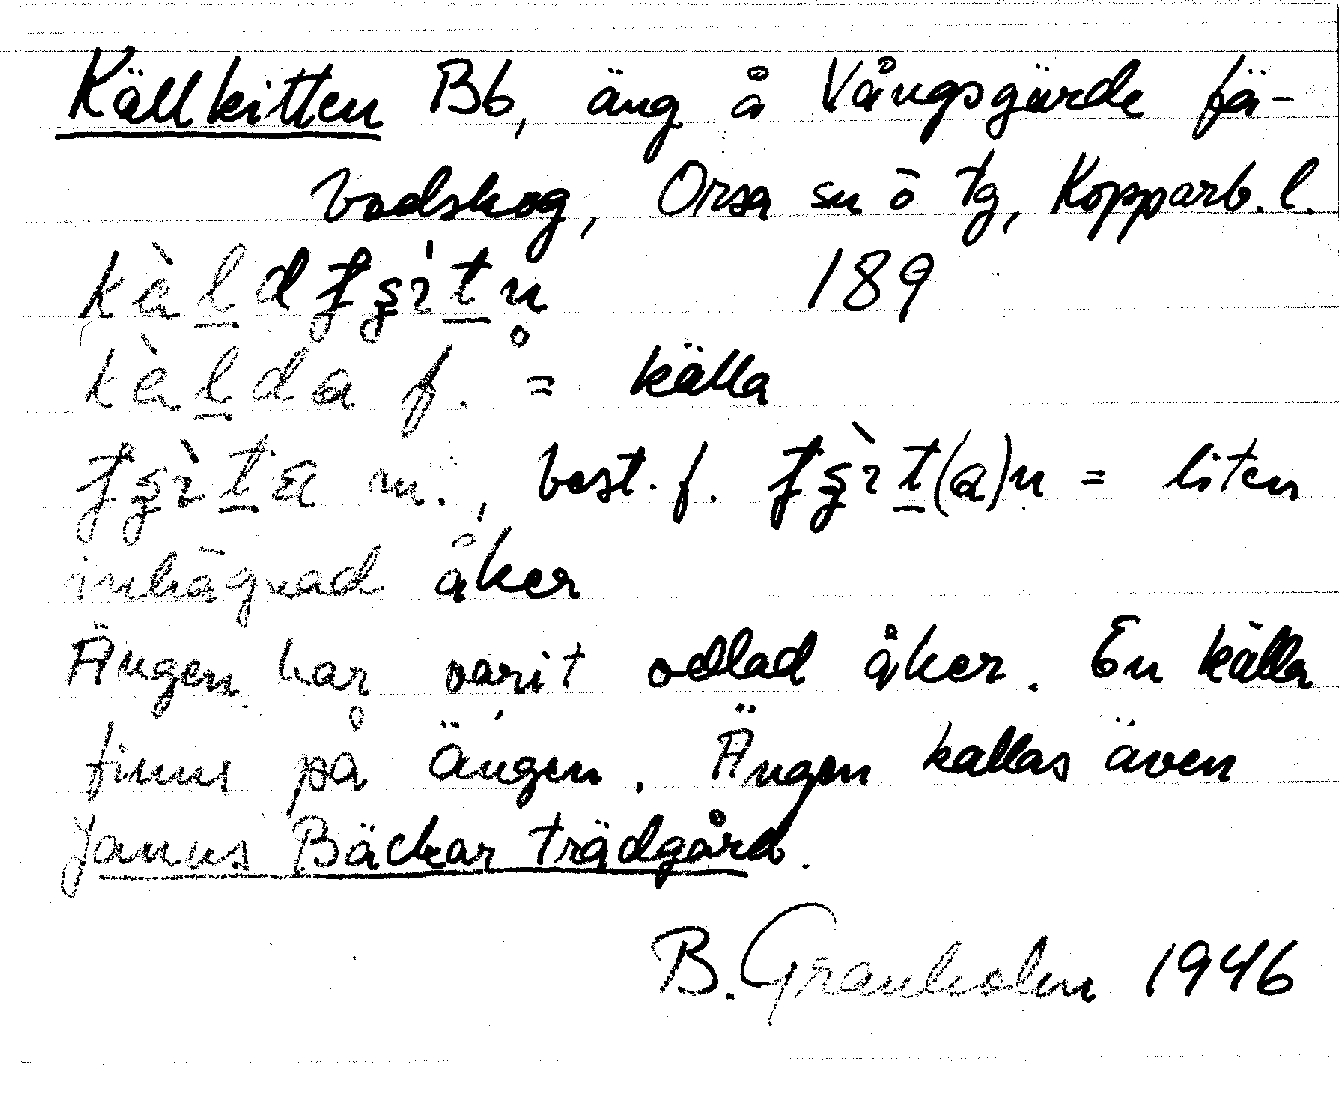 Källkitten Bb, äng å Vångsgärde fä-
bodskog, Orsa sn ö tg, Kopparb. l.
189
kàlda f. = källa
m., best. f. = liten
inhägnad åker
Ängen har varit odlad åker. En källa
finns på ängen. Ängen kallas även
Janus Bäckar trädgård.
B. Granholm 1946